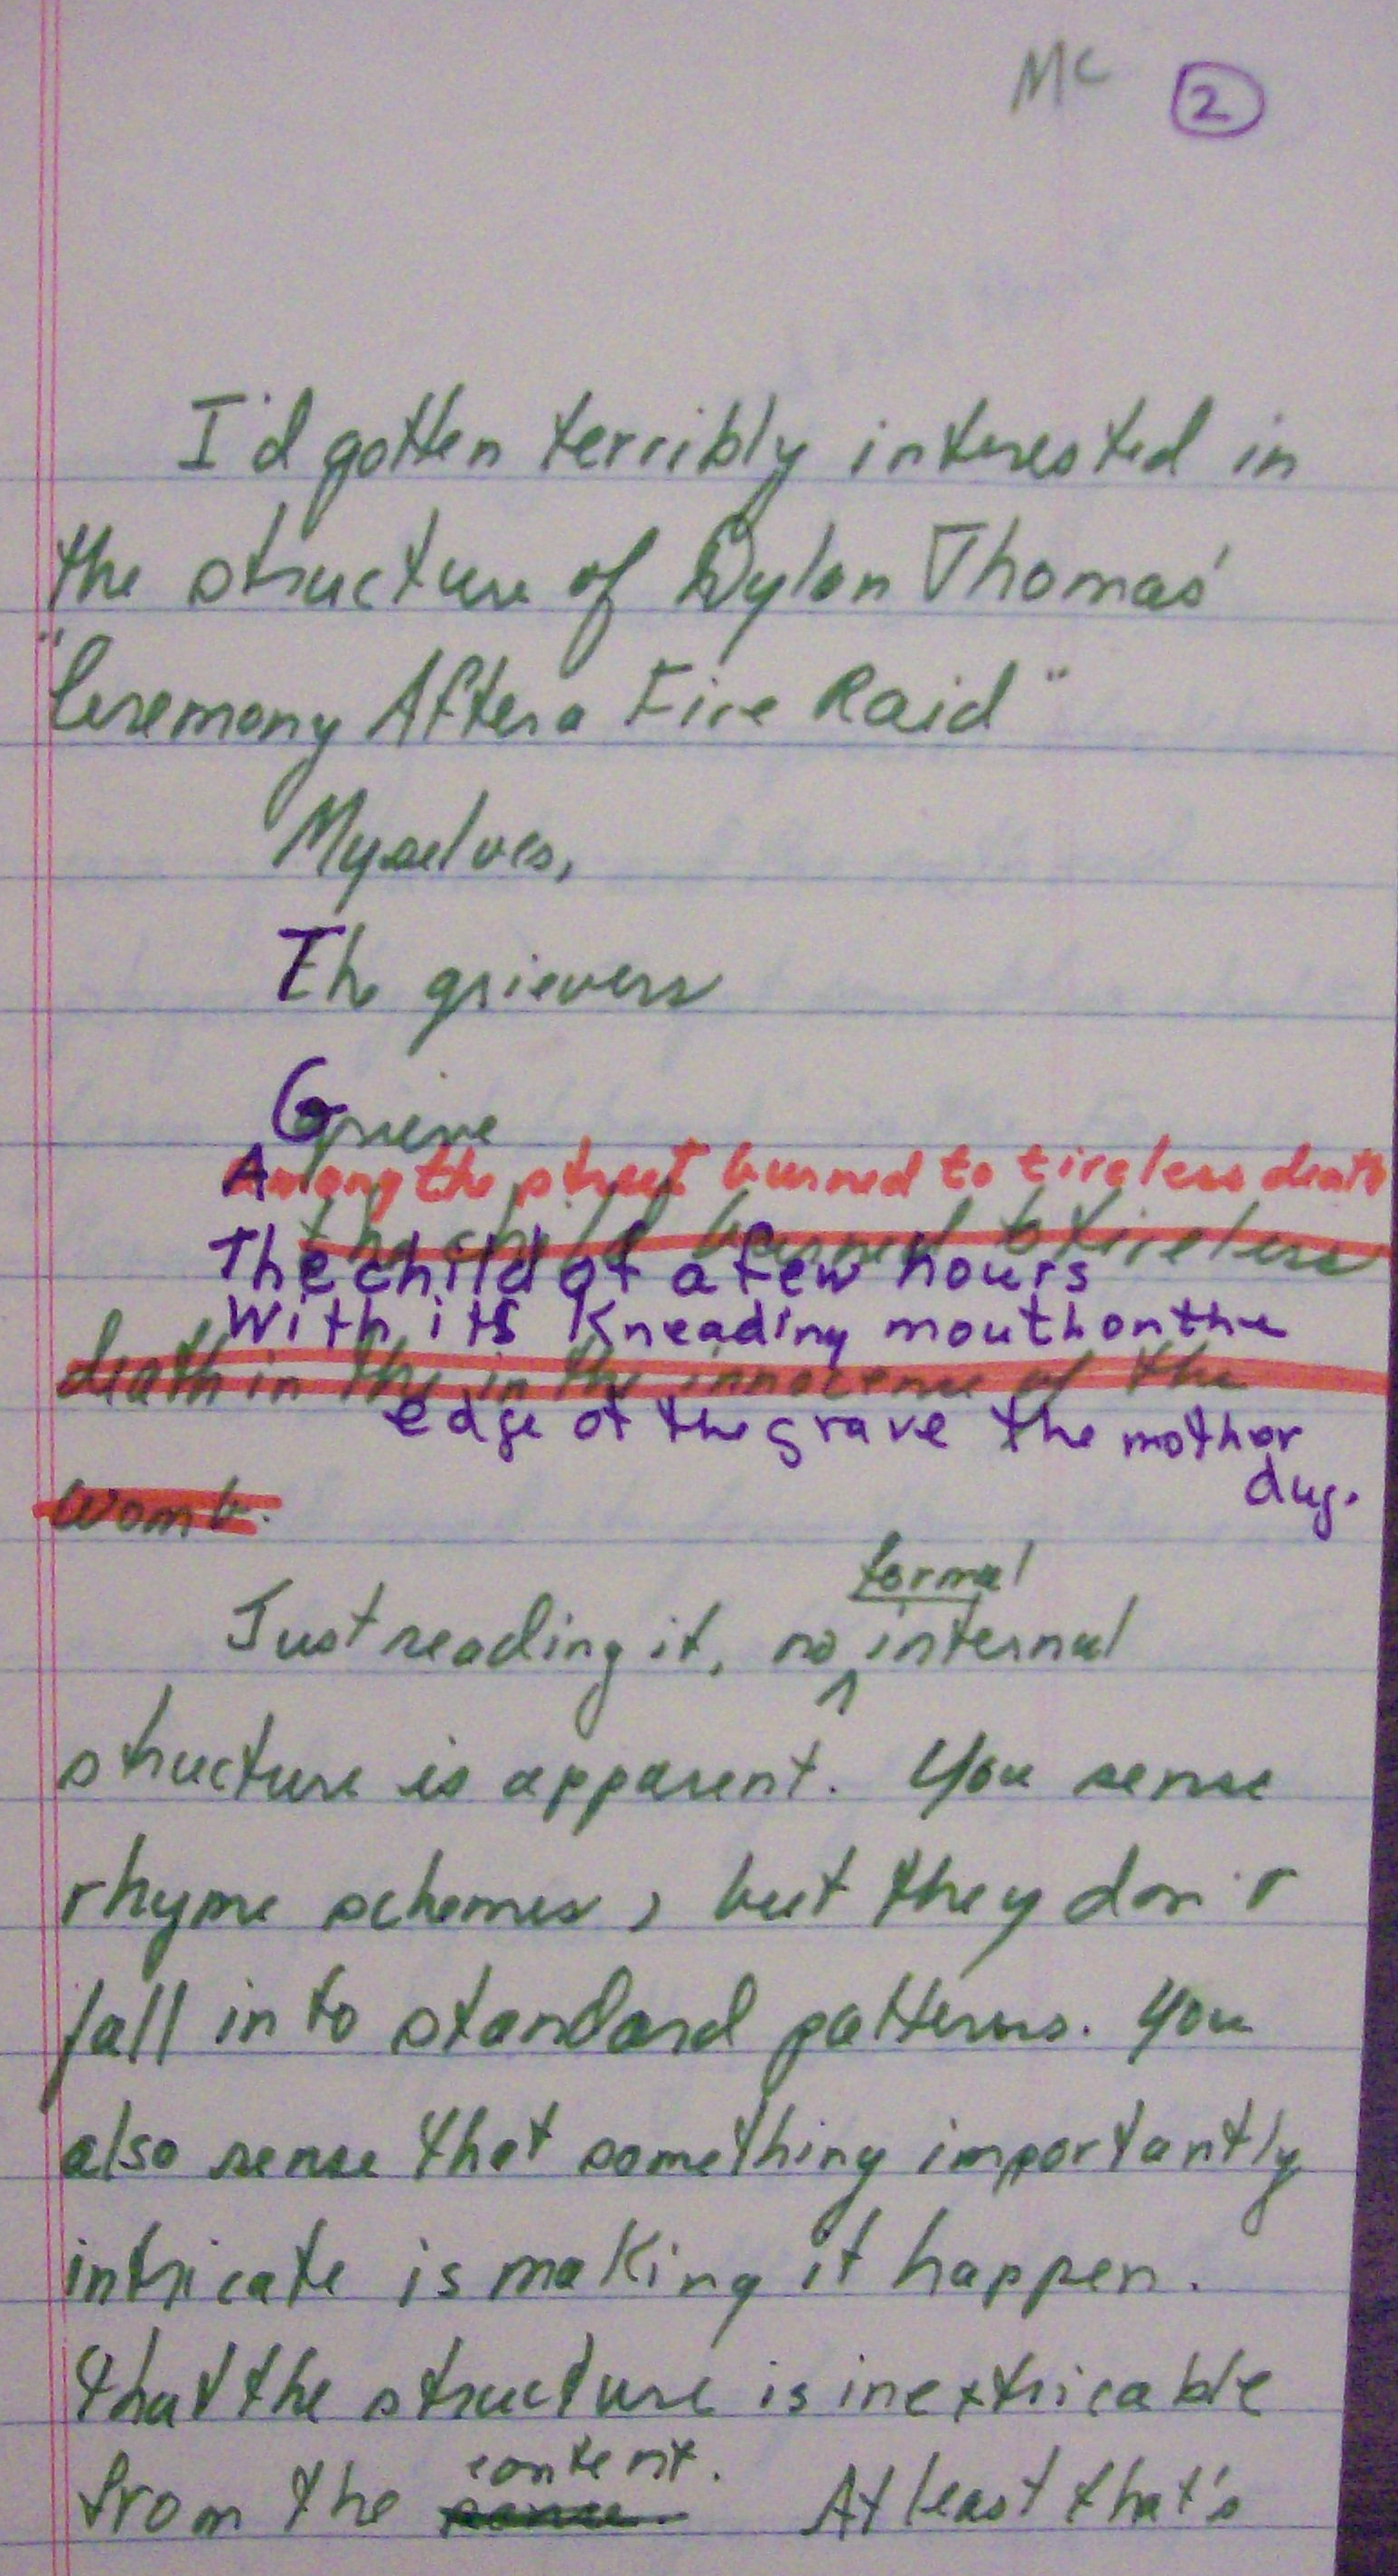 MC 2
I'd gotten terribly interested in
the structure of Dylan Thomas'
"Ceremony After a Fire Raid"
Myselves,
The grievers
Grieve
Among the street burned to tireless death
the child burned to tireless
The child of a few hours
With its Kneading mouth on the
death in the in the innocence of the
edge of the grave the mother
dug.
womb.
formal
Just reading it, no internal
structure is apparent. You sense
rhyme schemes, but they don't
fall into standard patterns. You
also sense that something importantly
intricate is making it happen.
that the structure is inextricable
content.
from the At least that's